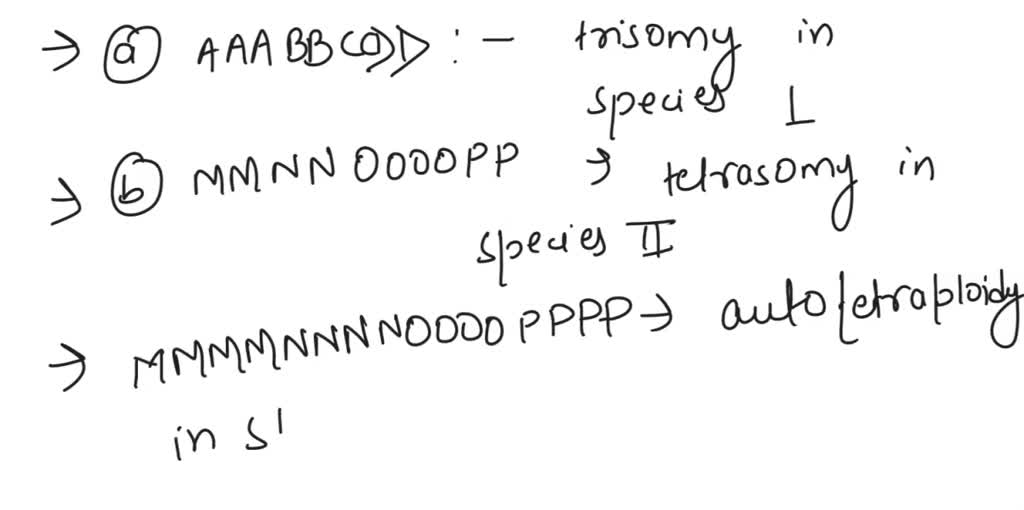 → ⓐ AAABBCDD :- trisomy in
species I
→ ⓑ MMNNOOOOPP → tetrasomy in
species II
→ MMMMNNNNOOOOPPPP → autotetraploidy
in s